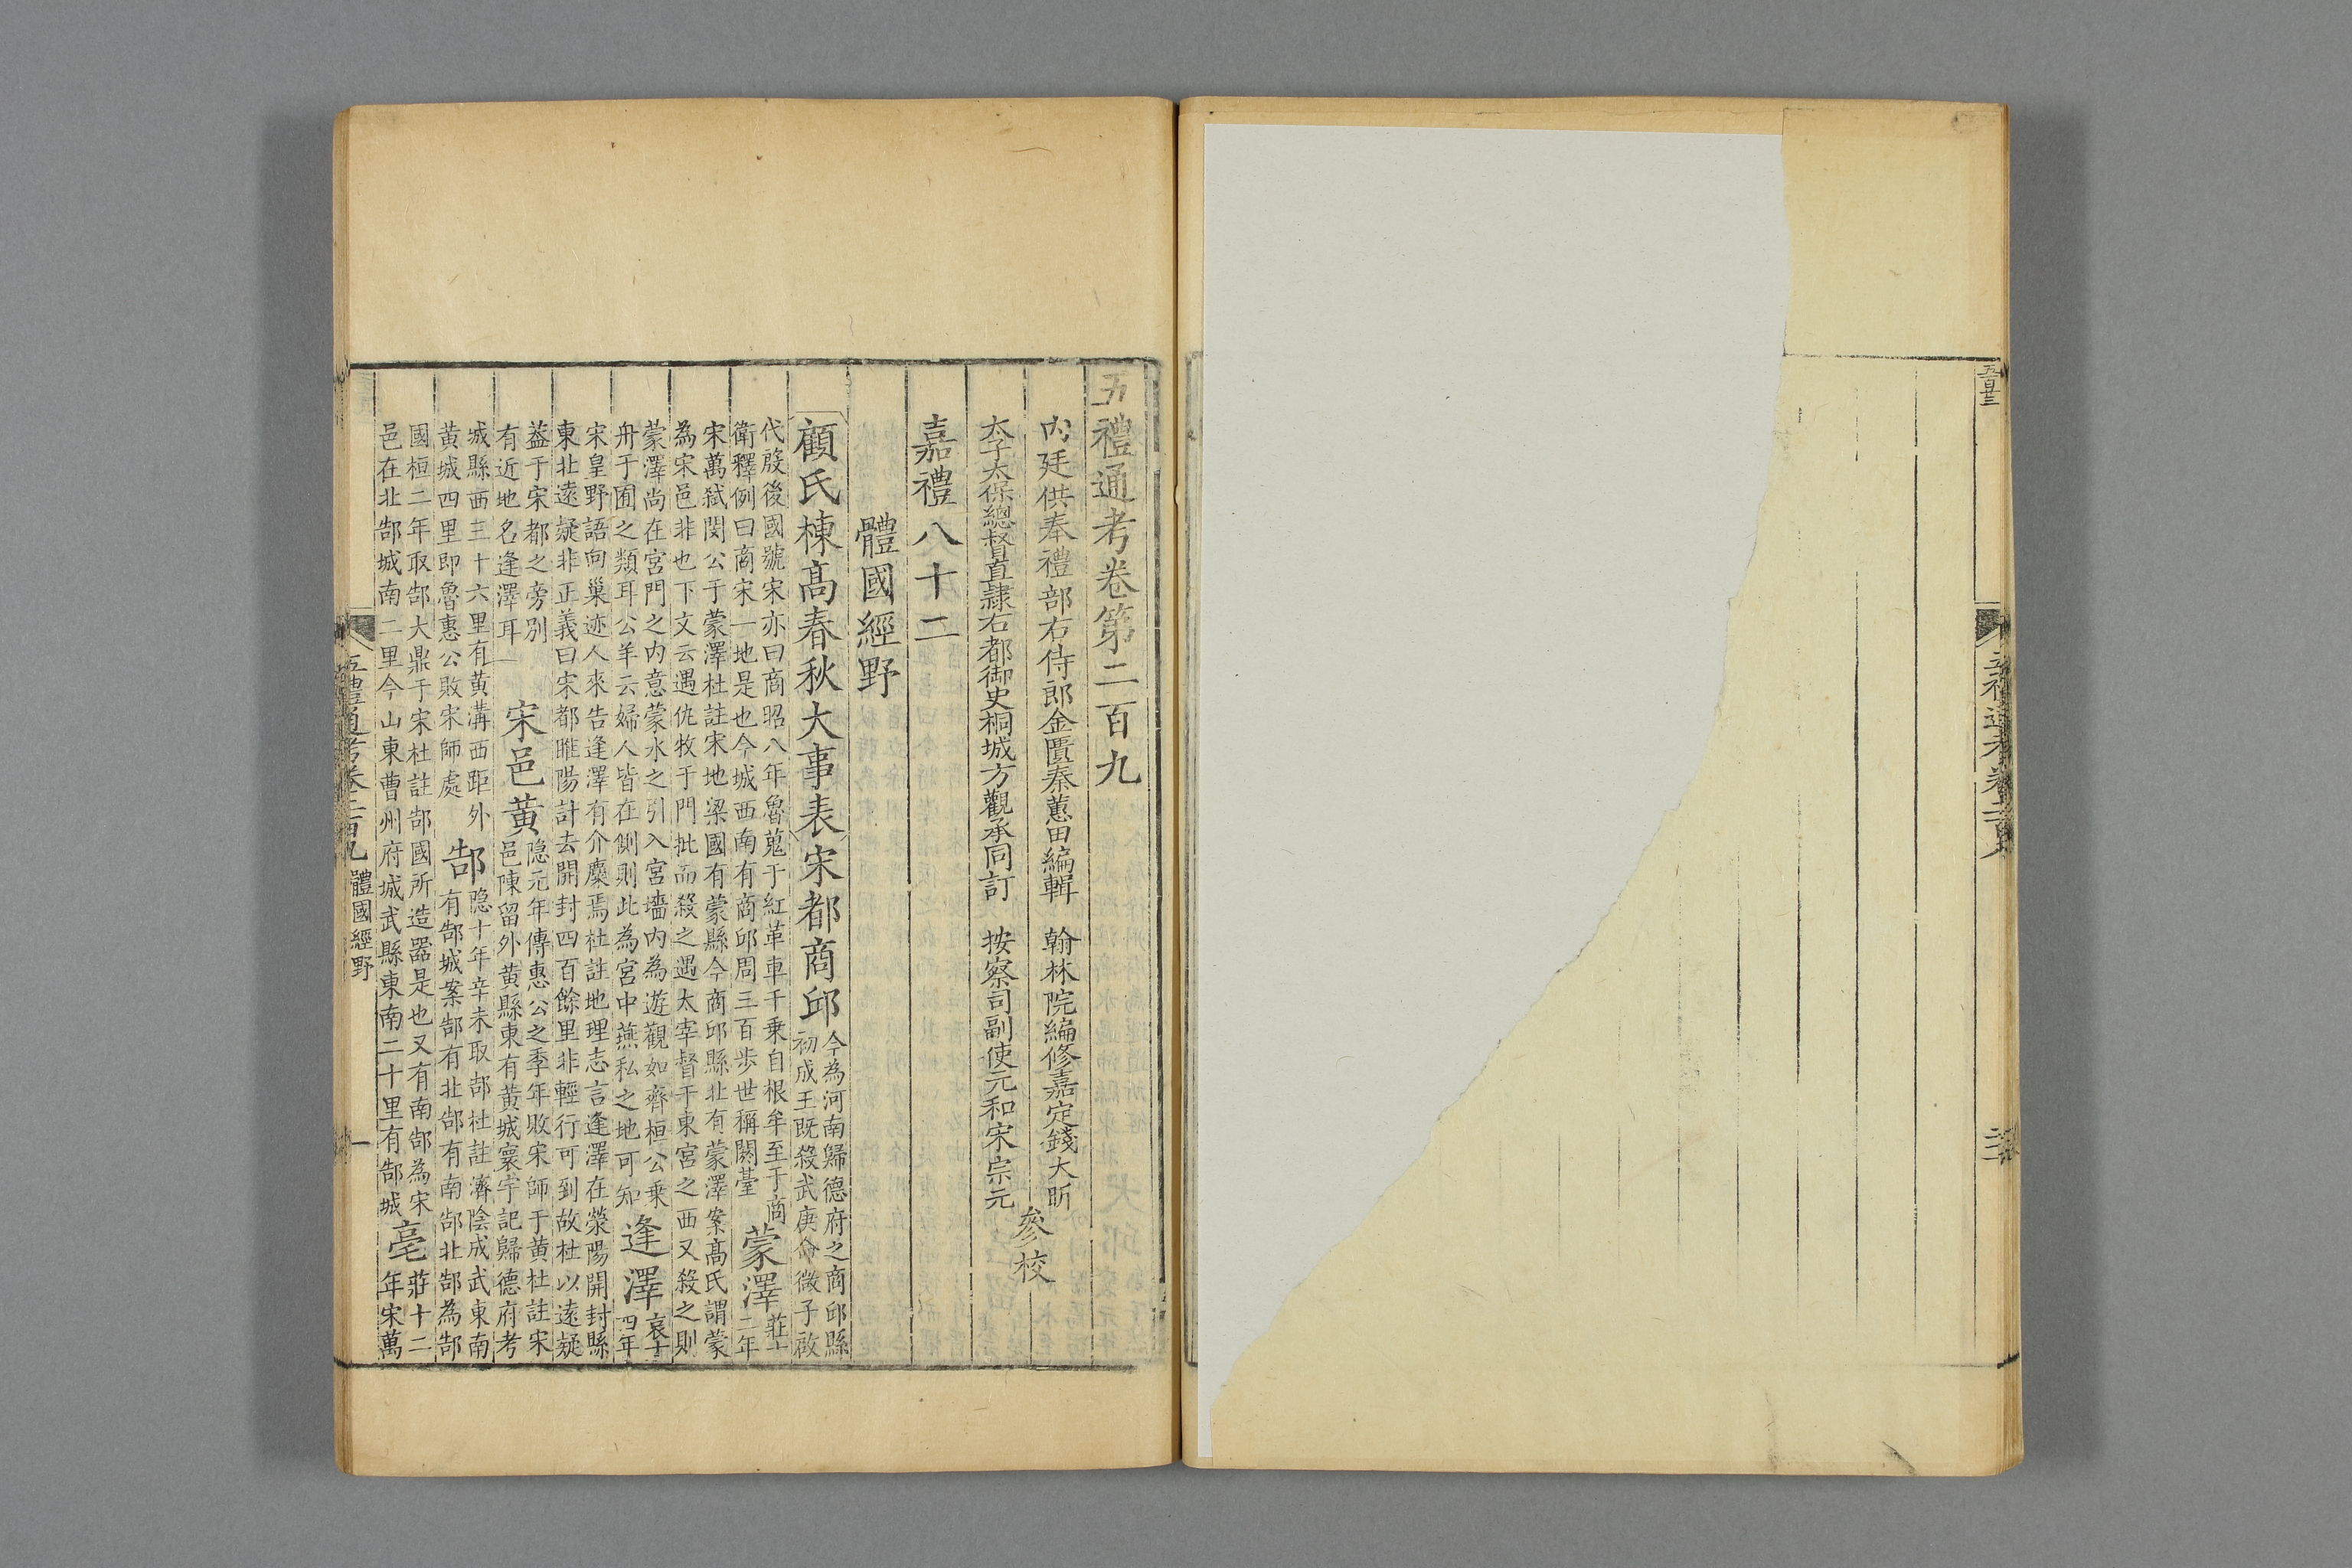 五百廿三
五禮通考卷第二百九
內廷供奉禮部右侍郎金匱秦蕙田編輯　翰林院編修嘉定錢大昕
太子太保總督直隸右都御史桐城方觀承同訂　按察司副使元和宋宗元
參校
嘉禮八十二
體國經野
顧氏棟高春秋大事表宋都商邱
今為河南歸德府之商邱縣
初成王既殺武庚命微子啟
代殷後國號宋亦曰商昭八年魯蒐于紅革車千乘自根牟至于商
衛釋例曰商宋一地是也今城西南有商邱周三百步世稱閼臺
蒙澤
莊十
二年
宋萬弒閔公于蒙澤杜註宋地梁國有蒙縣今商邱縣北有蒙澤案高氏謂蒙
為宋邑非也下文云遇仇牧于門批而殺之遇太宰督于東宮之西又殺之則
蒙澤尚在宮門之內意蒙水之引入宮墻內為遊觀如齊桓公乘
舟于囿之類耳公羊云婦人皆在側則此為宮中燕私之地可知
逢澤
哀十
四年
宋皇野語向巢迹人來告逢澤有介麋焉杜註地理志言逢澤在滎陽開封縣
東北遠疑非正義曰宋都睢陽計去開封四百餘里非輕行可到故杜以遠疑
蓋于宋都之旁別
有近地名逢澤耳
宋邑黃
隐元年傳惠公之季年敗宋師于黃杜註宋
邑陳留外黃縣東有黃城寰宇記歸德府考
城縣西三十六里有黃溝西距外
黃城四里即魯惠公敗宋師處
郜
隐十年辛未取郜杜註濟陰成武東南
有郜城案郜有北郜有南郜北郜為郜
國桓二年取郜大鼎于宋杜註郜國所造器是也又有南郜為宋
邑在北郜城南二里今山東曹州府城武縣東南二十里有郜城
亳
莊十二
年宋萬
五禮通考卷二百九　體國經野
一